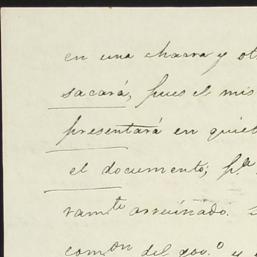 en una chacra y ot
sacará, pues el mis
presentará en quie
el documento; pª
ramte arruinado.
comon del gov.o y